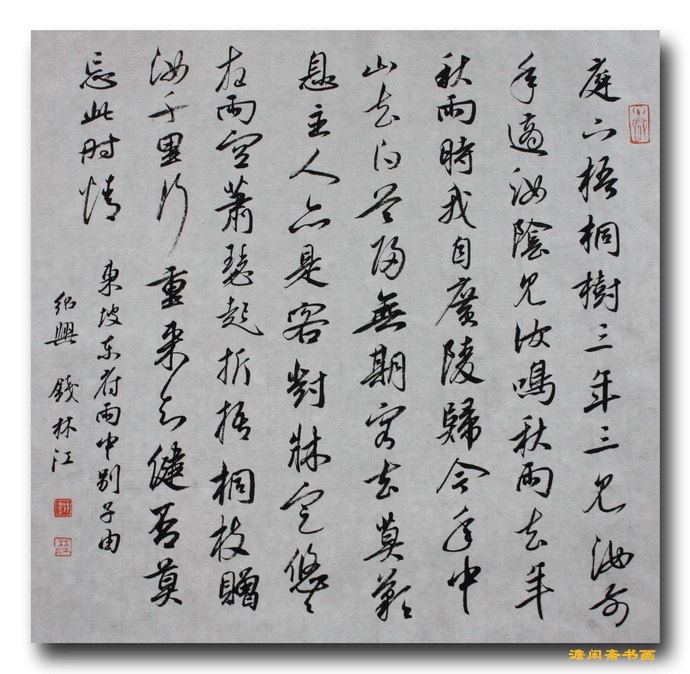 庭下梧桐樹三年三見汝前
年適汝陰見汝鳴秋雨去年
秋雨時我自廣陵歸今年中
山去白首歸無期客去莫歎
息主人亦是客對牀定悠々
夜雨空蕭瑟起折梧桐枝贈
汝千里行重來知健否莫
忘此时情
東坡东府雨中別子由
紹興 錢林江
澹闲斋书画